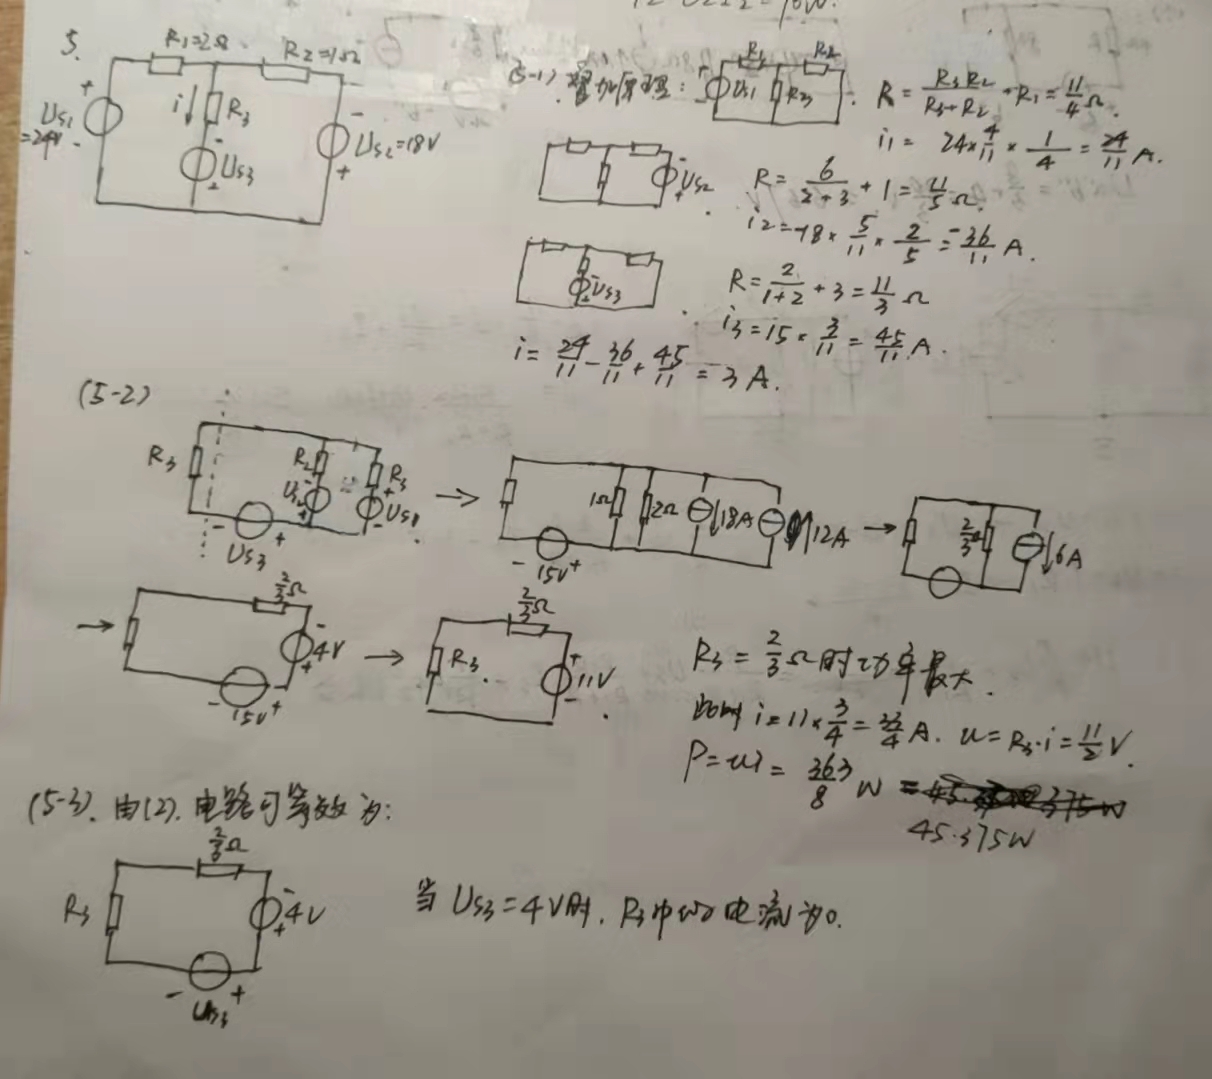 5.
R₁=2Ω
R₂=1Ω
+
Us₁
=24V
-
i↓
R₃
-
Us₃
+
-
Us₂=18V
+
(5-1) 叠加原理:
R₁
R₂
+
Us₁
R₃
-
R = R₃R₂/(R₃+R₂) + R₁ = 11/4 Ω.
i₁ = 24×4/11 × 1/4 = 24/11 A.
-
Us₂
+
R = 6/(2+3) + 1 = 11/5 Ω.
i₂ = -18 × 5/11 × 2/5 = -36/11 A.
-
Us₃
+
R = 2/(1+2) + 3 = 11/3 Ω
i₃ = 15 × 3/11 = 45/11 A.
i = 24/11 - 36/11 + 45/11 = 3A.
(5-2)
R₃
R₂
Us₂
R₃
+
Us₁
-
- Us₃ +
→
1Ω
2Ω
↓18A
↑12A
- 15V +
→
2/3Ω
↓6A
→
2/3Ω
-
4V
+
- 15V +
→
2/3Ω
R₃.
+
11V
-
R₃ = 2/3 Ω时功率最大.
此时 i = 11×3/4 = 33/4 A. u = R₃·i = 11/2 V.
P = ui = 363/8 W =
45.375W
(5-3). 由(2). 电路可等效为:
2/3Ω
R₃
-
4V
+
- Us₃ +
当 Us₃ = 4V时. R₃中的电流为0.